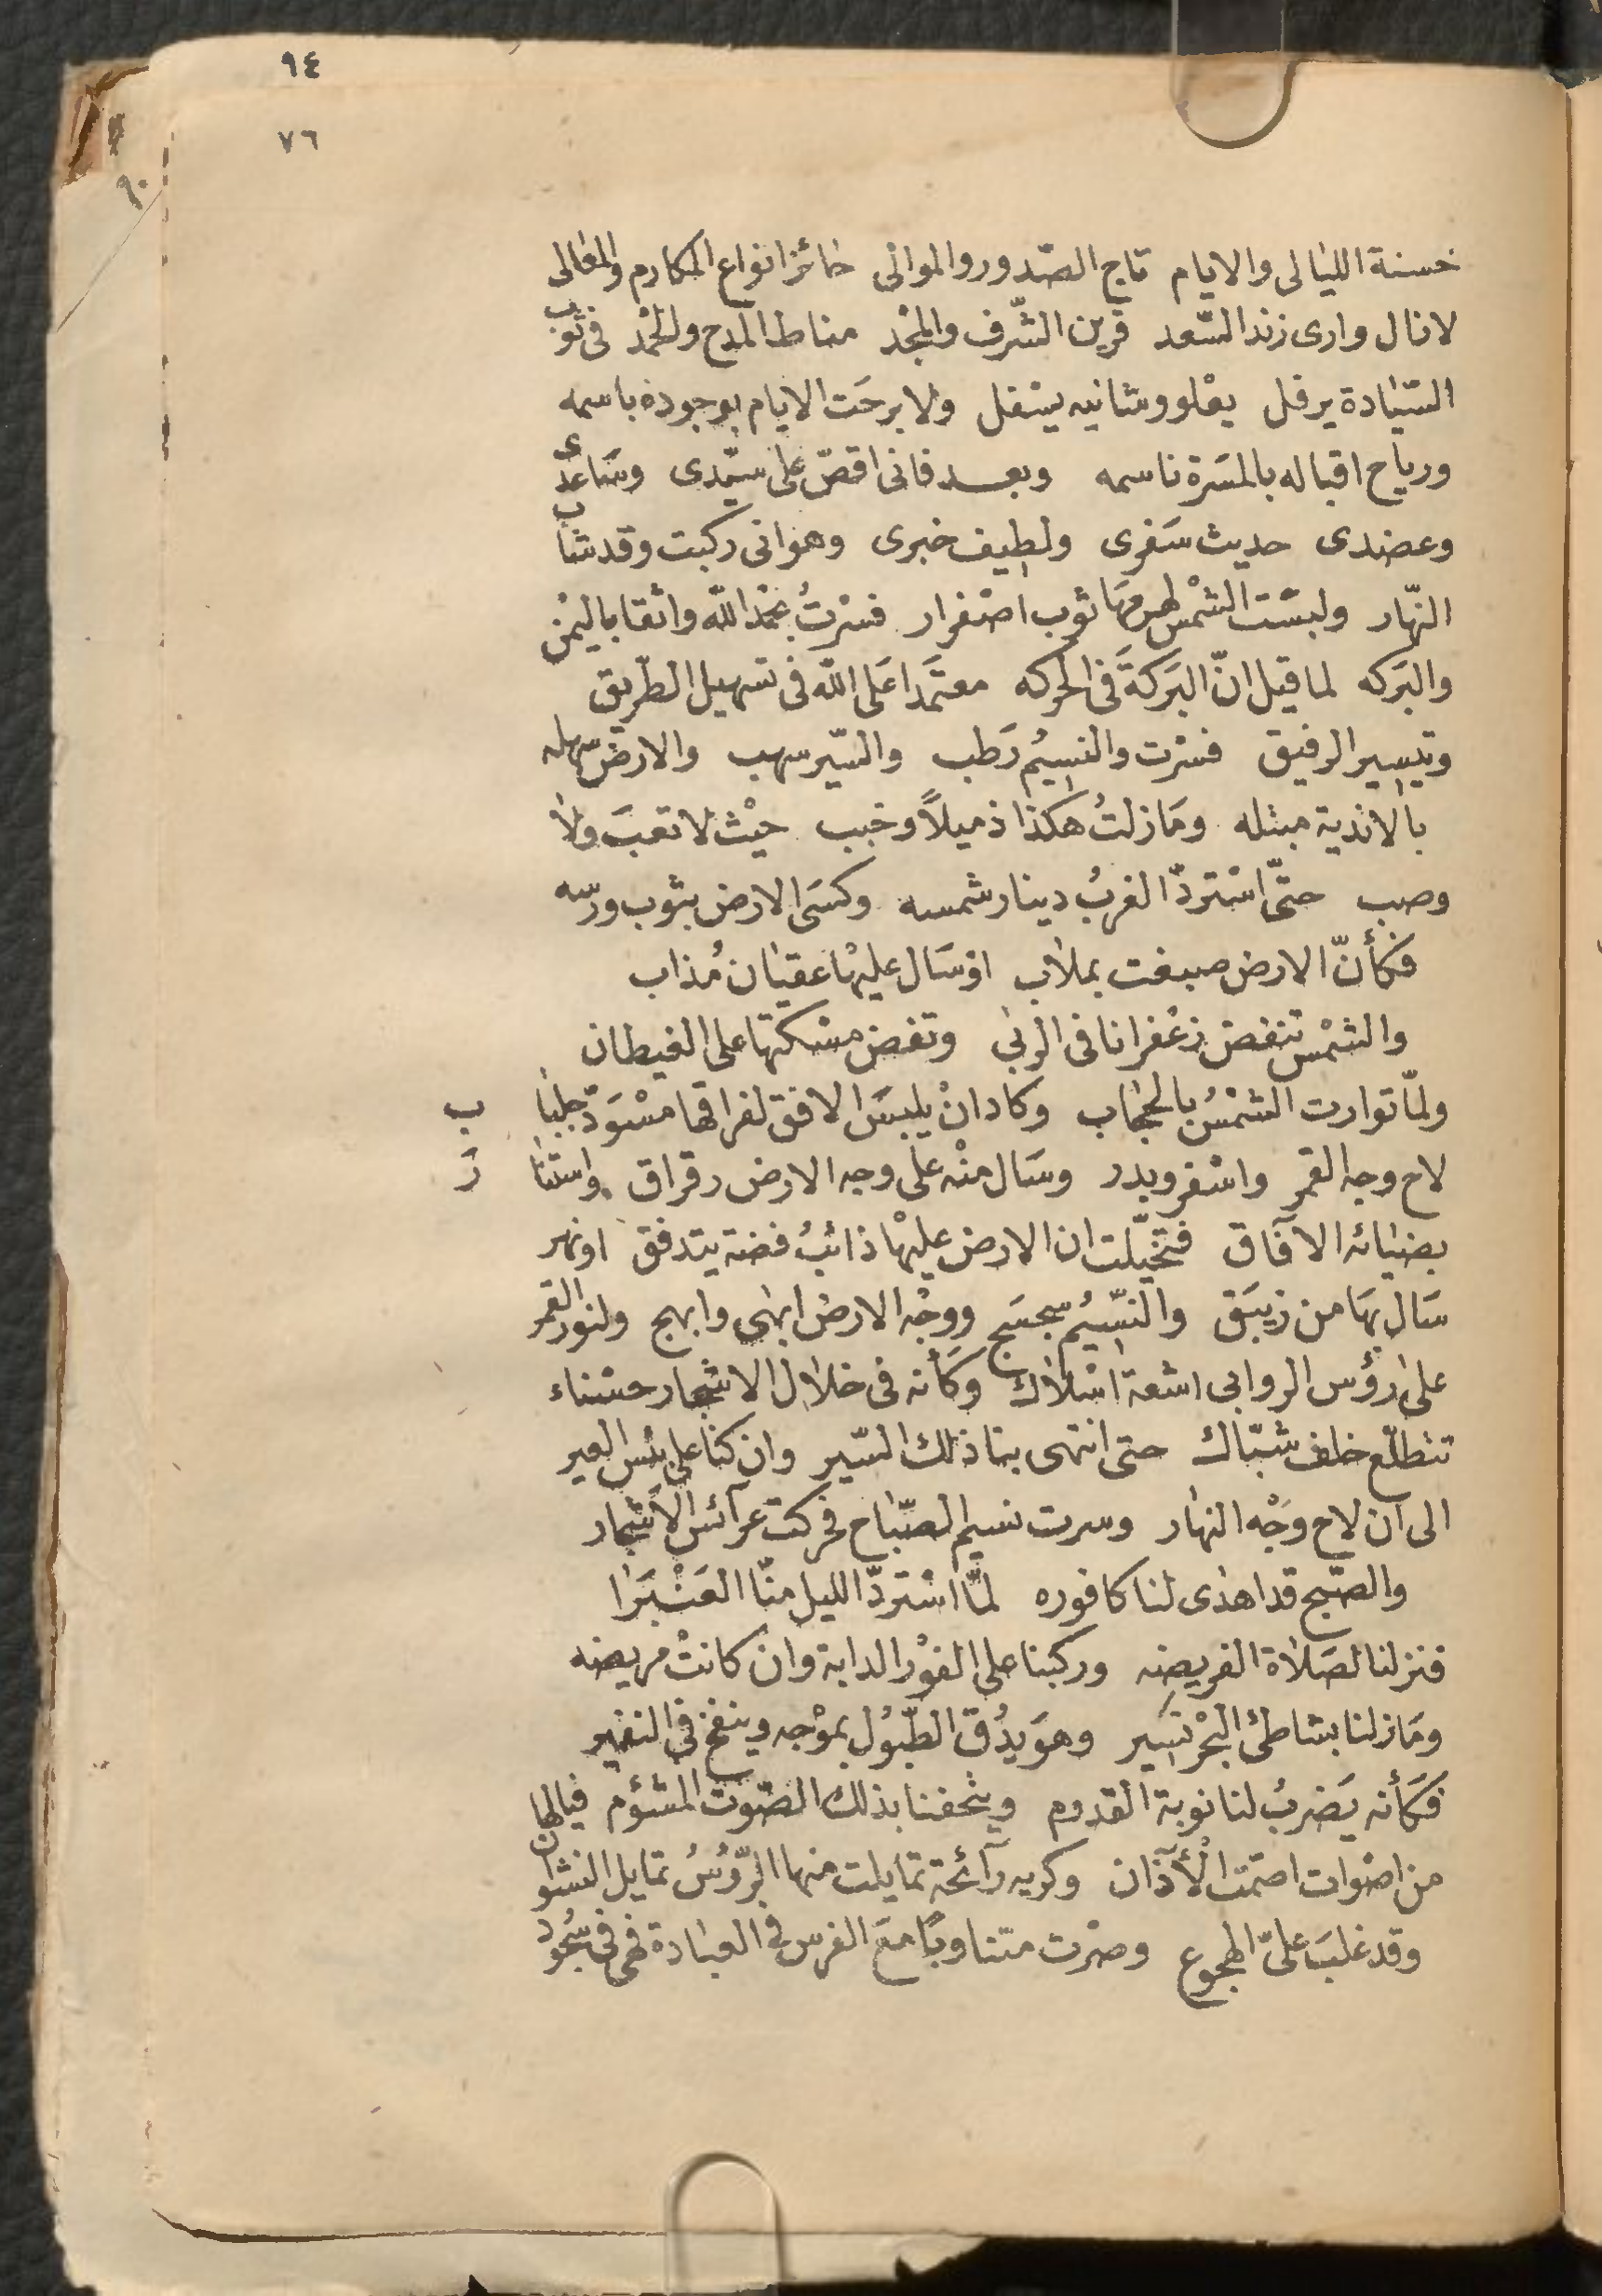 ٩٤
٧٦
٩٠
حسنة الليالى والايام تاج الصّدور والموالى حائز انواع المكارم والمعالى
لازال وارى زند السّعد قرين الشّرف والمجْد مناط المدح والحمْد فى ثوب
السّيادة يرفل يعْلو وشانيه يسْفل ولا برحَت الايام بوجوده باسمه
ورياح اقباله بالمسَرة ناسمه وبعد فانى اقصّ على سيّدى وسَاعدى
وعضدى حديث سَفرى ولطيف خبرى وهو انى ركبت وقد شاب
النّهار ولبسْت الشمْس لهرمهَا ثوب اصْفرار فسْرتُ بحمْد الله واثقا باليُمْن
والبَركه لما قيل انّ البَركةَ فى الحركه معتمَدا عَلى الله فى تسهيل الطّريق
وتيسير الرفيق فسْرت والنسيمُ رَطب والسّير سهب والارض سهله
بالاندية مبتله ومَازلتُ هكذا ذميلاً وخبب حيْث لا تعبَ ولا
وصب حتّى اسْتردّ الغربُ دينار شمسه وكسَى الارض بثوب ورسه
فكأنّ الارض صبغت بملاب اوْسَال عليهْا عقيان مُذاب
والشمْس تنفض زعْفرانا فى الربى وتفض مسْكتها على الغيطان
ولمّا توارت الشمْسُ بالحجاب وكاد انْ يلبسَ الافق لفراقها مسْوَدّ جلباب
لاح وجه القمر واسْفر وبدر وسَال منْه على وجه الارض رقراق واستنار
بضيائه الآفاق فتخيّلت ان الارض عليهْا ذائبُ فضة يتدفق او نهر
سَال بهَا من زيبَق والنّسيُم سجسَج ووجْه الارض ابهى وابهج ولنور القمر
على رؤس الروابى اشعة اسْلاك وكأنه فى خلال الاشجار حسْناء
تتطلّع خلف شبّاك حتى انتهى بنا ذلك السّير وان كنا على بئس العير
الى ان لاح وَجْه النهار وسرت نسيم الصّباح فحركت عرآئس الاشجار
والصّبح قد اهدى لنا كافوره لمّا اسْتردّ الليل منّا العَنْبَرا
فنزلنا لصَلاة الفريضه وركبنا على الفوْر الدابة وان كانتْ مريضه
ومَازلنا بشاطئ البحْر نسَير وهوَ يدُق الطّبُول بموْجه وينفخ فى النفير
فكَأنه يَضربُ لنا نوبة القدوم ويتحفنا بذلك الصّوت المشؤم فيالها
من اصْوات اصمّت الْأذآن وكريه رآئحة تمايلت منها الرّؤسُ تمايل النشوان
وقد غلبَ علىّ الهجوع وصرْت متناوبًا معَ الفرس فى العبادة فهى فى سُجود